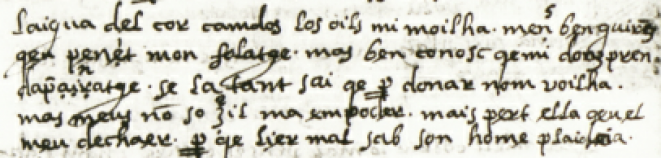 Laigua del cor camdos los oils mi moilha. mens ben quireg
qeu peret mon folatge. mas ben conosc qemi don pren
dapasnratge. se la tant sai qe ꝑ donar nom voilha.
mas meus no so qil ma empoder. mais pert ella qeu el
meu dechaer. ꝑ qe lier mal sab son home plaideia.